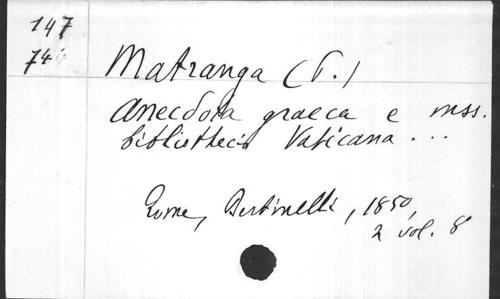 147
74
Matranga (P.)
Anecdota graeca e mss.
bibliothecis Vaticana ...
Rome, Bertinelli, 1850,
2 vol. 8°